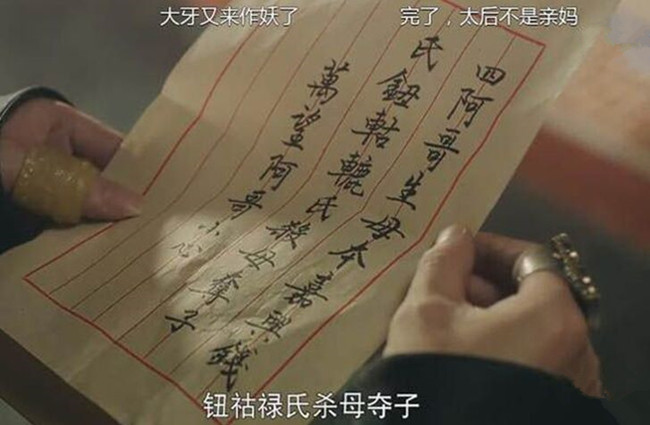 大牙又来作妖了
完了，太后不是亲妈
四阿哥生母本嘉興錢
氏鈕軲轆氏殺母奪子
萬望阿哥小心
钮祜禄氏杀母夺子